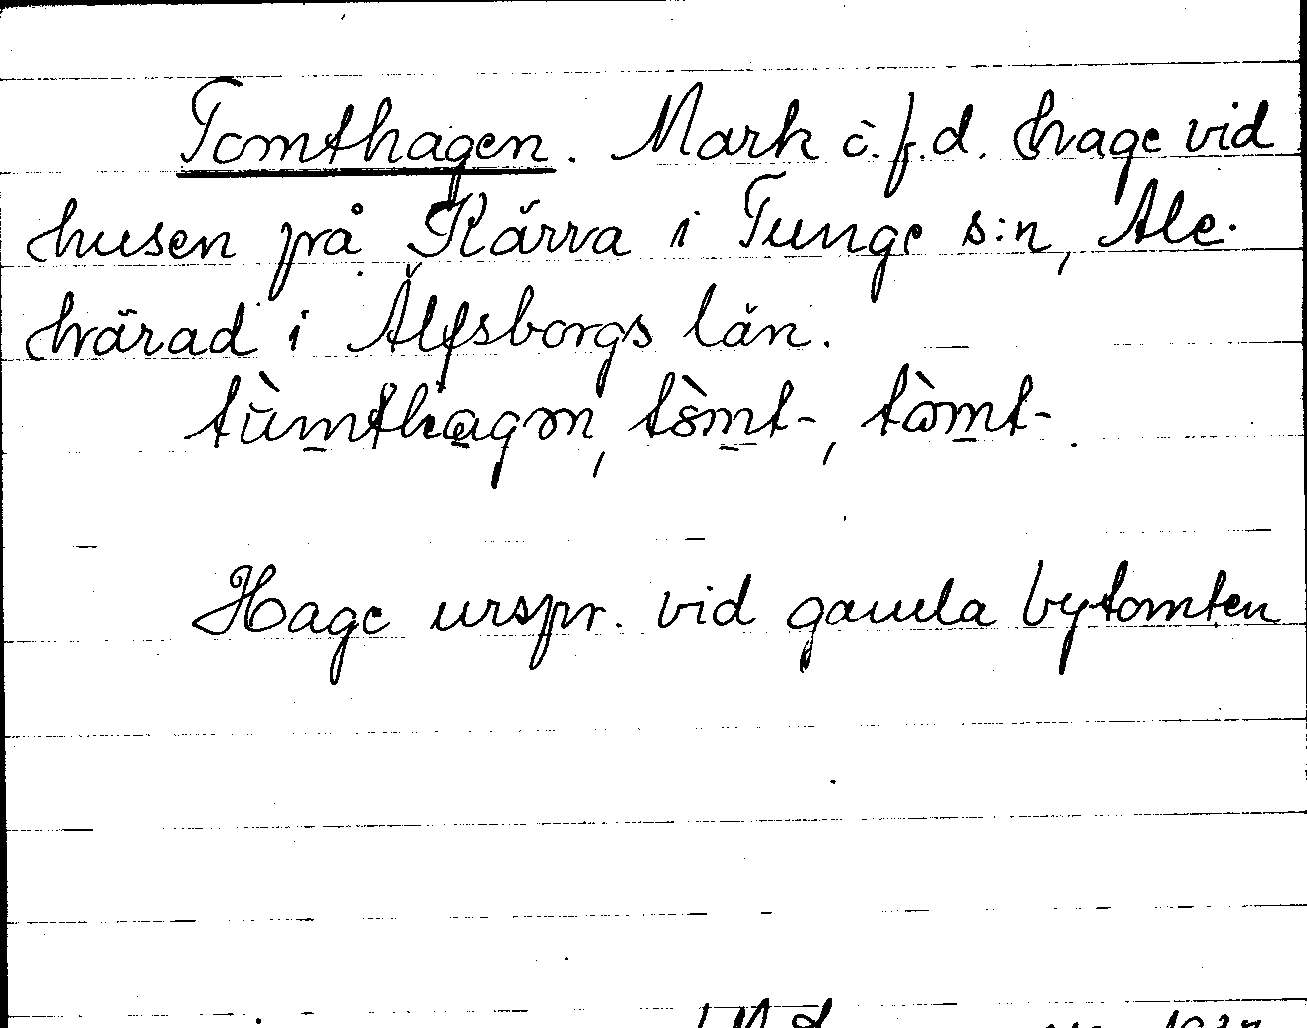 Tomthagen. Mark i f.d. hage vid
husen på Kärra i Tunge s:n, Ale-
härad i Älfsborgs län.
tùmthagən, tòmt-, tàmt-.
Hage urspr. vid gamla bytomten